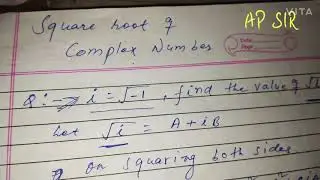 VITA
AP SIR
Square root of
Complex Number
Date
Page
Q:→ i = √-1, find the value of √i
Let √i = A+iB
on squaring both sides